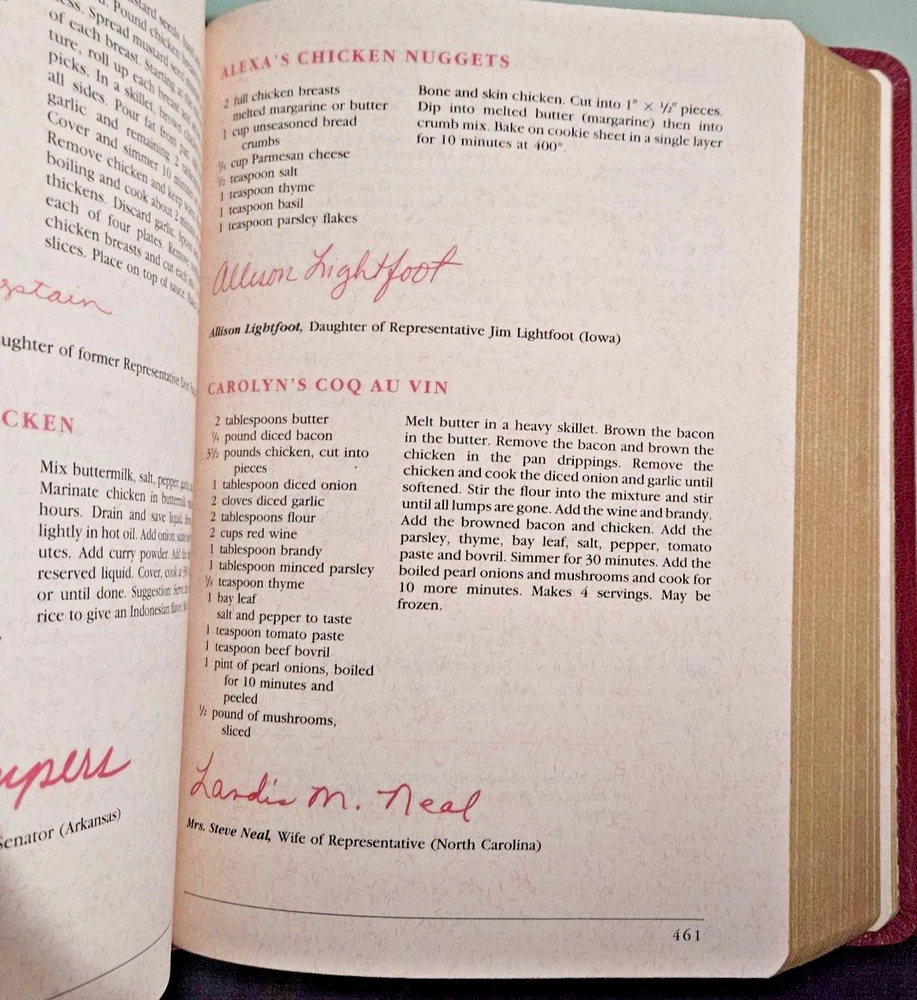 Pound chicken
Spread mustard seed
of each breast. Starting at
ture, roll up each breast
picks. In a skillet, brown
all sides. Pour fat from
garlic and remaining 2
Cover and simmer 10 minutes
Remove chicken and keep
boiling and cook about 2
thickens. Discard garlic.
each of four plates. Remove
chicken breasts and cut each
slices. Place on top of sauce.
ughter of former Representative
CKEN
Mix buttermilk, salt, pepper,
Marinate chicken in buttermilk
hours. Drain and save liquid
lightly in hot oil. Add onion,
utes. Add curry powder. Add
reserved liquid. Cover, cook
or until done. Suggestion: Serve
rice to give an Indonesian flavor.
enator (Arkansas)
ALEXA'S CHICKEN NUGGETS
2 full chicken breasts
melted margarine or butter
1 cup unseasoned bread
crumbs
¼ cup Parmesan cheese
½ teaspoon salt
1 teaspoon thyme
1 teaspoon basil
1 teaspoon parsley flakes
Bone and skin chicken. Cut into 1" × ½" pieces.
Dip into melted butter (margarine) then into
crumb mix. Bake on cookie sheet in a single layer
for 10 minutes at 400°.
Allison Lightfoot
Allison Lightfoot, Daughter of Representative Jim Lightfoot (Iowa)
CAROLYN'S COQ AU VIN
2 tablespoons butter
¼ pound diced bacon
3½ pounds chicken, cut into
pieces
1 tablespoon diced onion
2 cloves diced garlic
2 tablespoons flour
2 cups red wine
1 tablespoon brandy
1 tablespoon minced parsley
¼ teaspoon thyme
1 bay leaf
salt and pepper to taste
1 teaspoon tomato paste
1 teaspoon beef bovril
1 pint of pearl onions, boiled
for 10 minutes and
peeled
½ pound of mushrooms,
sliced
Melt butter in a heavy skillet. Brown the bacon
in the butter. Remove the bacon and brown the
chicken in the pan drippings. Remove the
chicken and cook the diced onion and garlic until
softened. Stir the flour into the mixture and stir
until all lumps are gone. Add the wine and brandy.
Add the browned bacon and chicken. Add the
parsley, thyme, bay leaf, salt, pepper, tomato
paste and bovril. Simmer for 30 minutes. Add the
boiled pearl onions and mushrooms and cook for
10 more minutes. Makes 4 servings. May be
frozen.
Landis M. Neal
Mrs. Steve Neal, Wife of Representative (North Carolina)
461